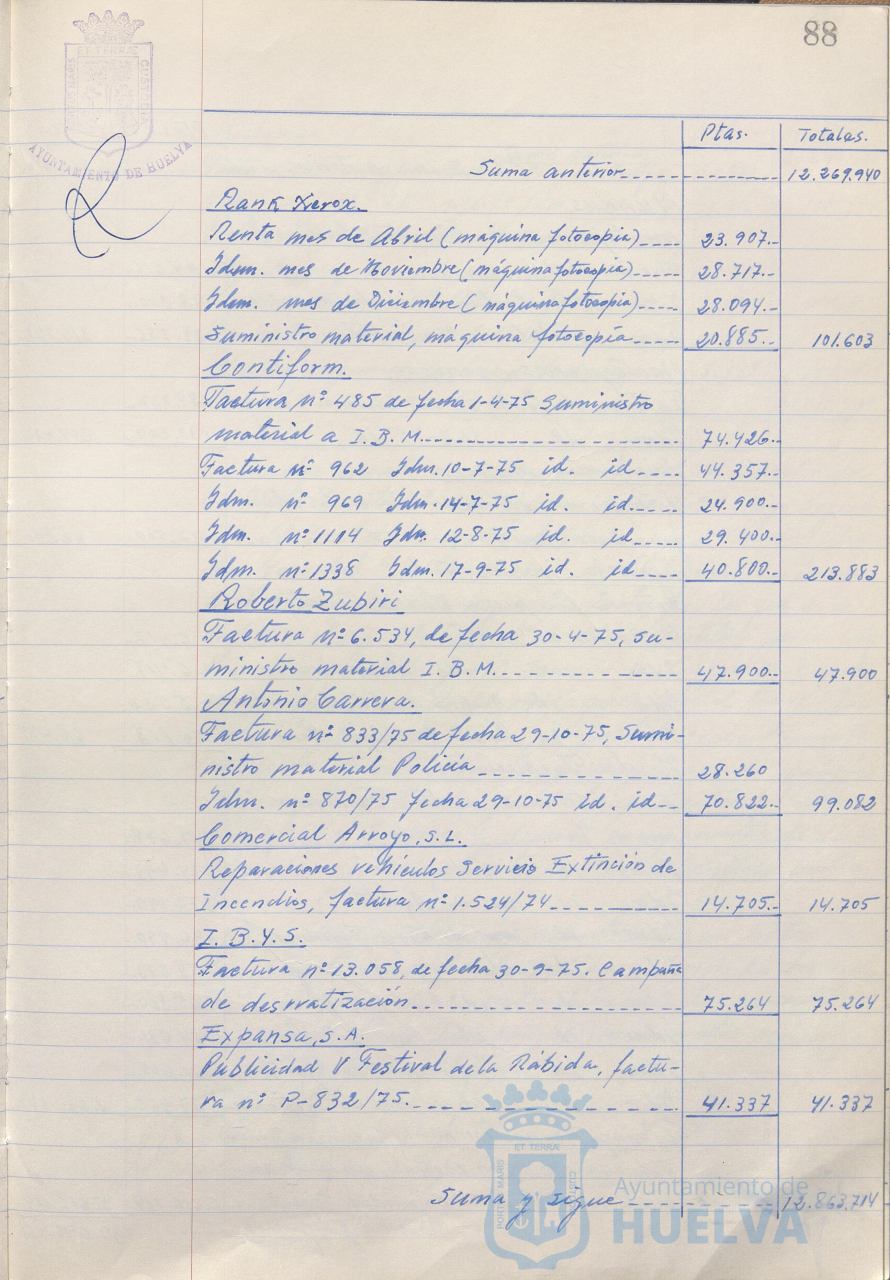 88
ET TERRÆ
CUSTODIA
AYUNTAMIENTO DE HUELVA
Ptas. Totales.
Suma anterior 12.269.940
Rank Xerox.
Renta mes de Abril (máquina fotocopia) 23.907.-
Idm. mes de Noviembre (máquina fotocopia) 28.717.-
Idm. mes de Diciembre (máquina fotocopia) 28.094.-
Suministro material, máquina fotocopia 20.885.- 101.603
Contiform.
Factura nº 485 de fecha 1-4-75 Suministro
material a I.B.M. 74.426.-
Factura nº 962 Idm. 10-7-75 id. id 44.357.-
Idm. nº 969 Idm. 14-7-75 id. id. 24.900.-
Idm. nº 1114 Idm. 12-8-75 id. id 29.400.-
Idm. nº 1338 Idm. 17-9-75 id. id 40.800.- 213.883
Roberto Zubiri
Factura nº 6.534, de fecha 30-4-75, su-
ministro material I.B.M. 47.900.- 47.900
Antonio Carrera.
Factura nº 833/75 de fecha 29-10-75, Sumi-
nistro material Policía 28.260
Idm. nº 870/75 fecha 29-10-75 id. id 70.822.- 99.082
Comercial Arroyo, S.L.
Reparaciones vehículos Servicio Extinción de
Incendios, factura nº 1.524/74 14.705.- 14.705
I.B.Y.S.
Factura nº 13.058, de fecha 30-9-75. Campaña
de desrratización 75.264 75.264
Expansa, S.A.
Publicidad V Festival de la Rábida, factu-
ra nº P-832/75. 41.337 41.337
Suma y sigue 12.863.714
ET TERRÆ
PORTUS MARIS
Ayuntamiento de
HUELVA